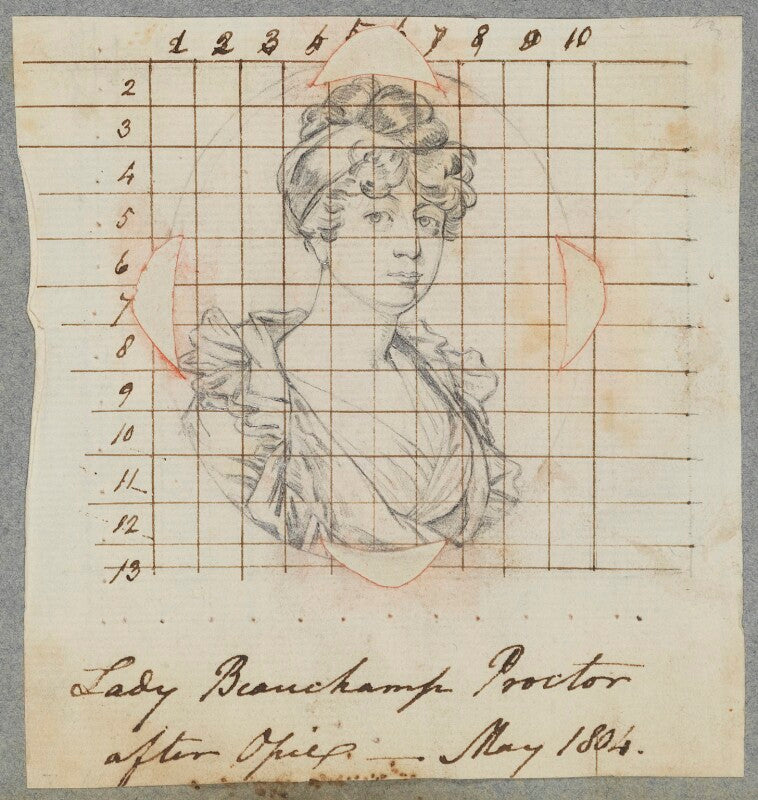 1 2 3 4 5 6 7 8 9 10
2
3
4
5
6
7
8
9
10
11
12
13
Lady Beauchamp Proctor
after Opie. — May 1804.